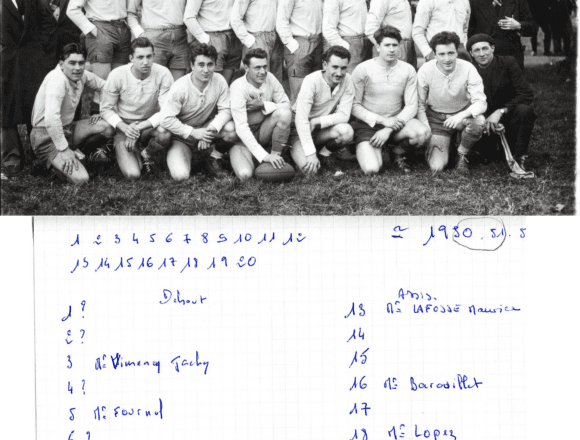 1 2 3 4 5 6 7 8 9 10 11 12
≃ 1950.51.5
13 14 15 16 17 18 19 20
Debout
Assis.
1 ?
13 Mr LAFOSSE Maurice
2 ?
14
3 Mr Vimeney Jacky
15
4 ?
16 Mr Barouillet
5 Mr Fournol
17
6 ?
18 Mr Lopez